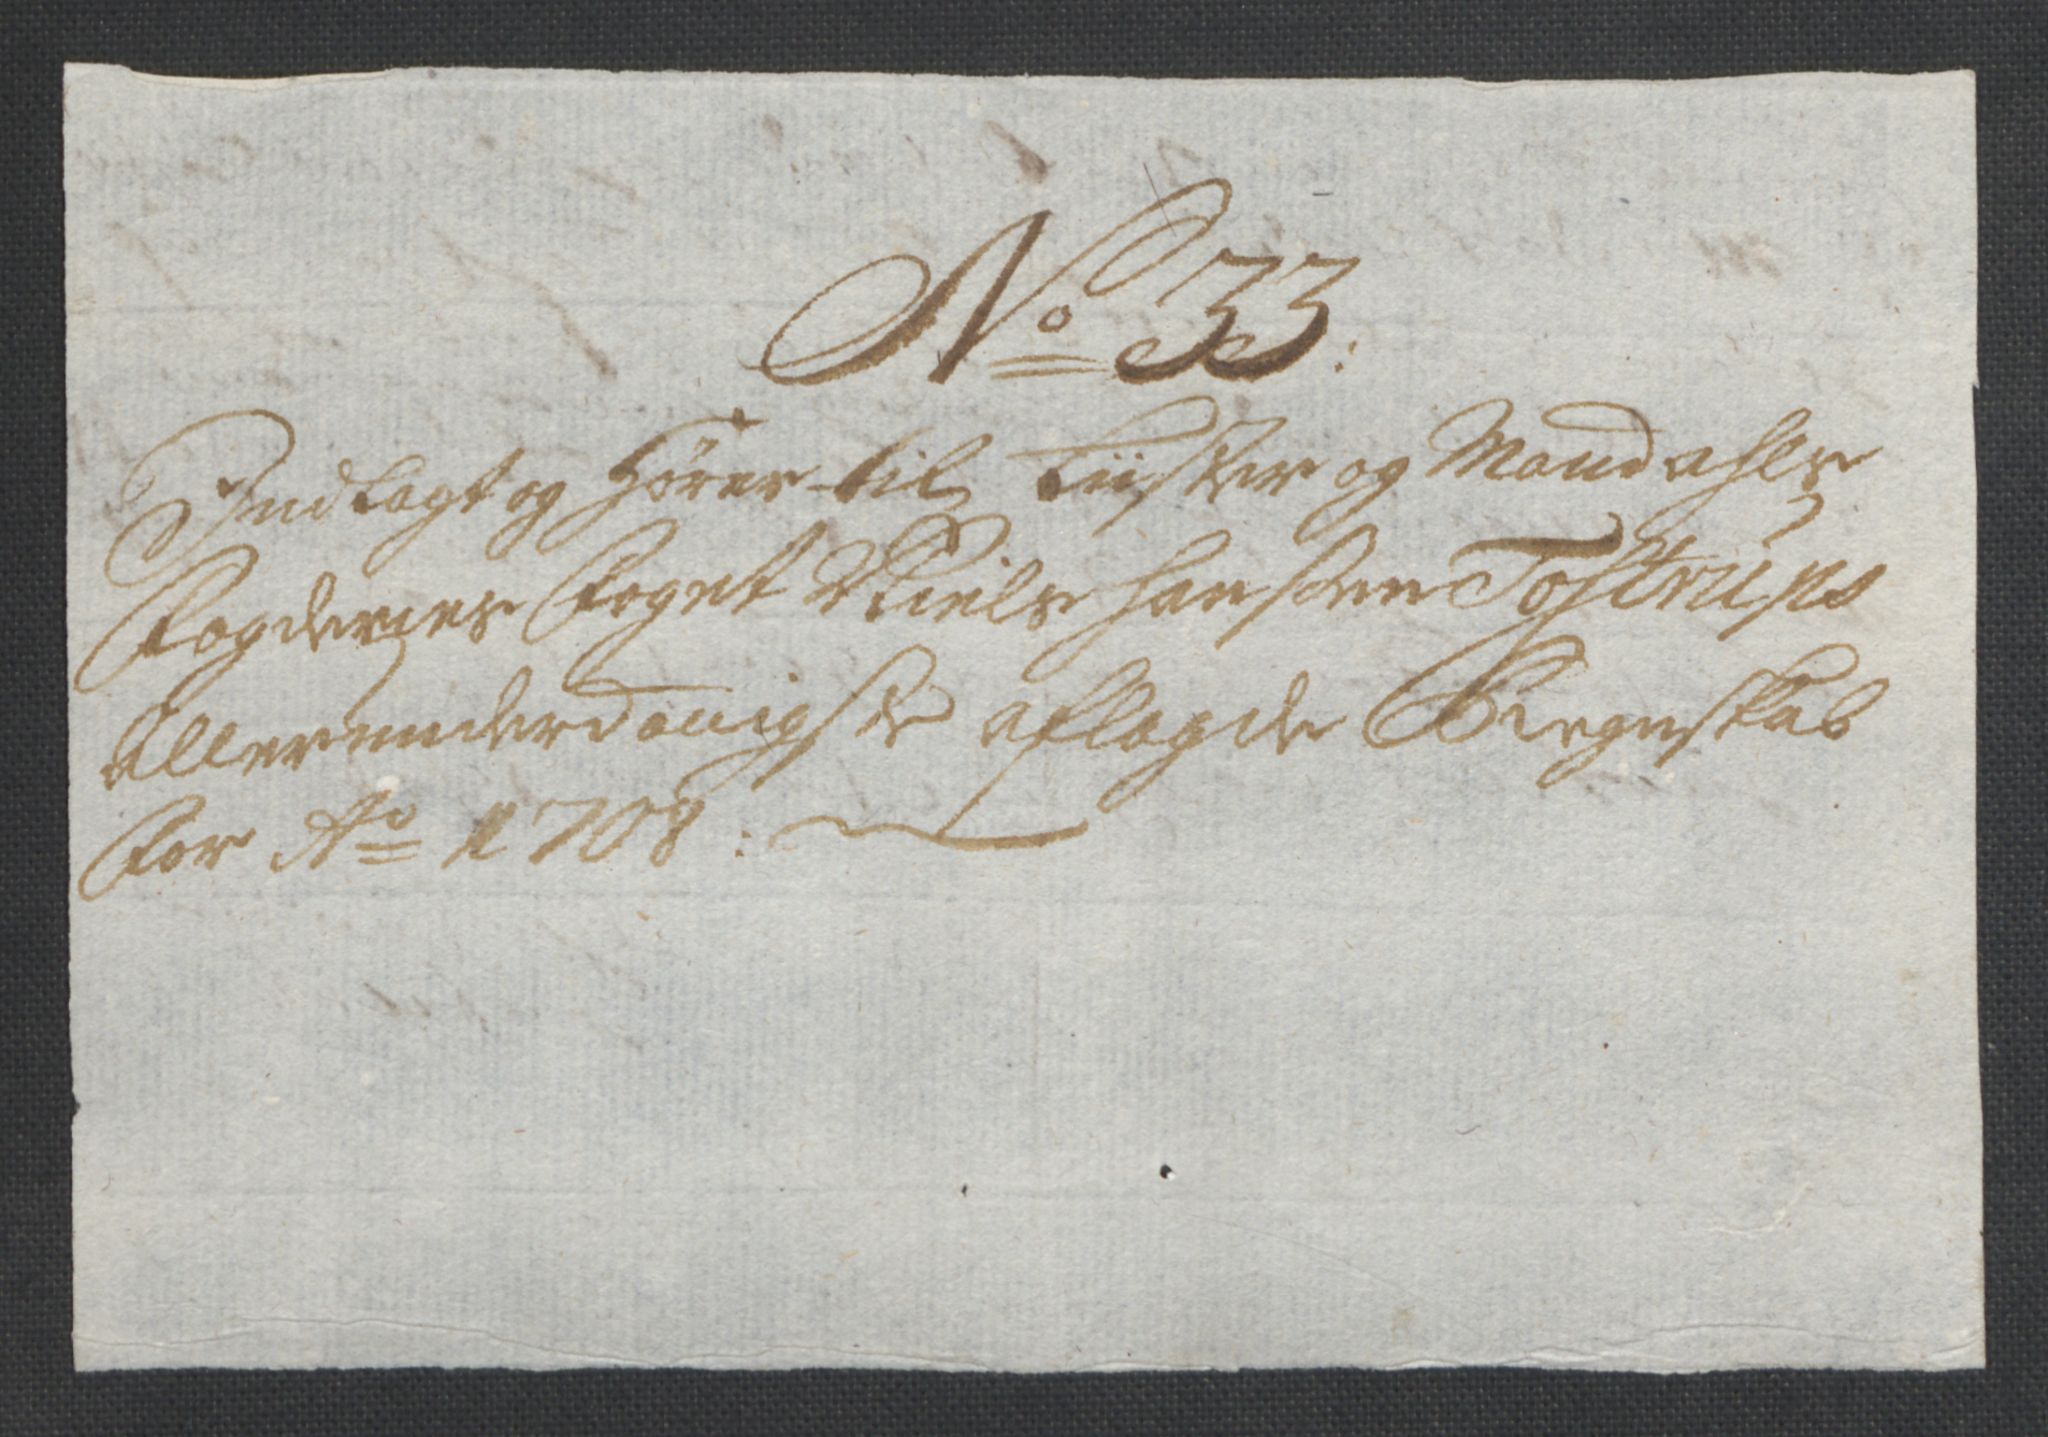 No 33.
Indlagt og hörer til Lüster og Mandahls
Fogderies Foget Niels Hanssen Tostrups
Allerunderdanigste aflagde Regnskab
for Ao 1708.